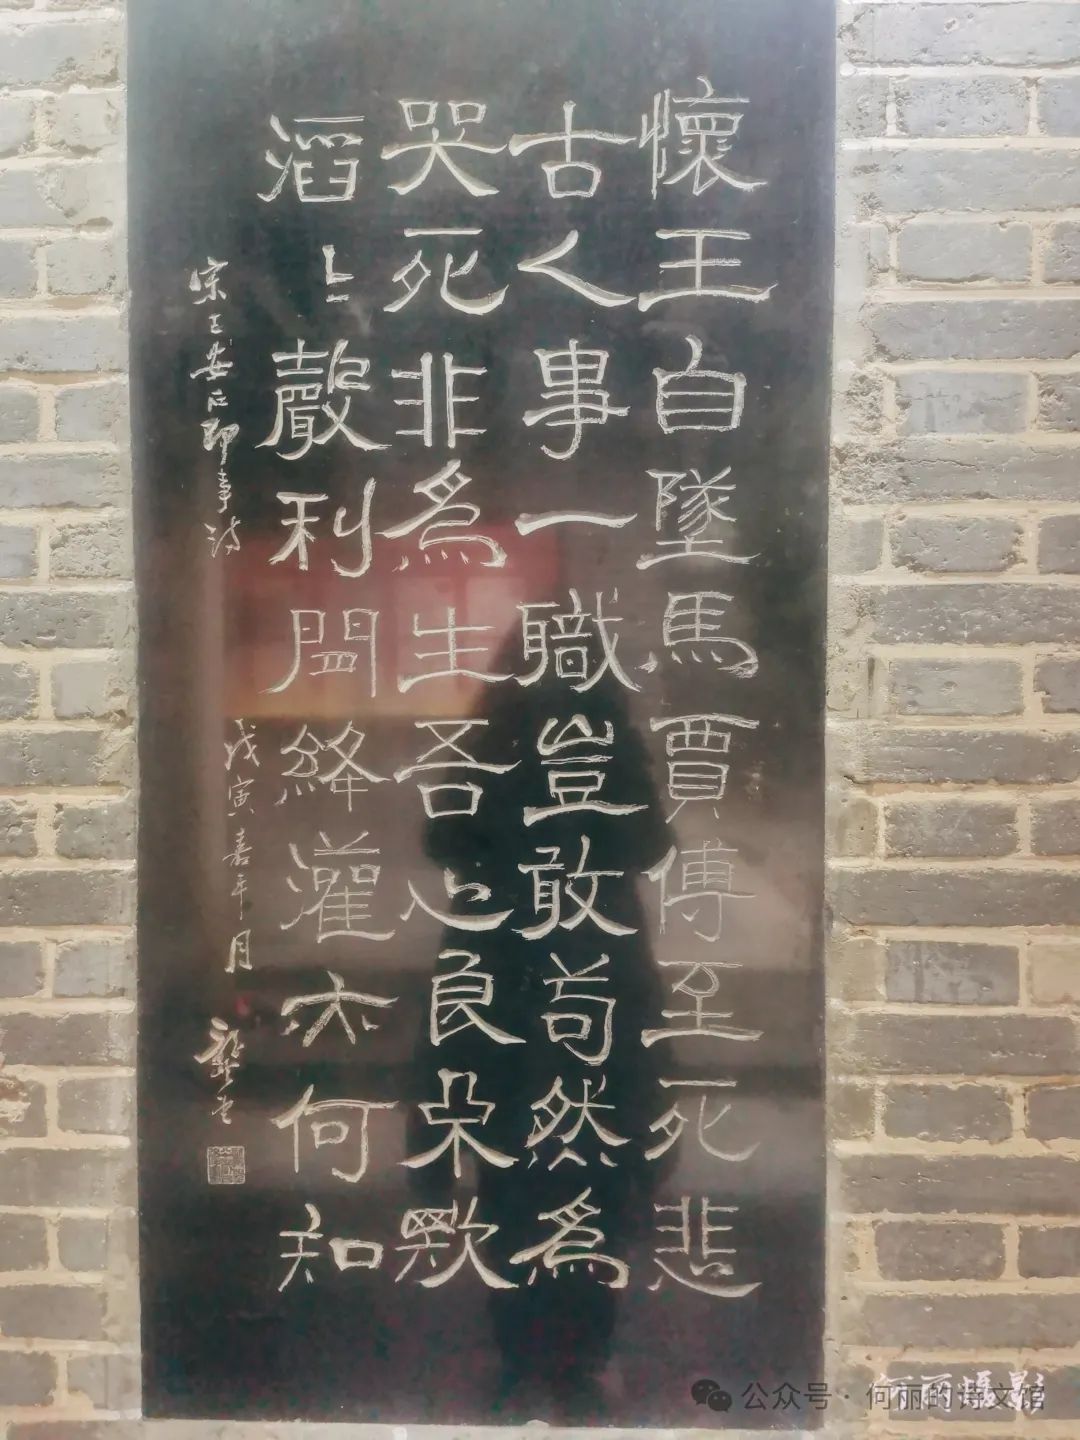 懷王自墜馬賈傅至死悲
古人事一職豈敢苟然為
哭死非為生吾心良不欺
滔〻聲利間絳灌亦何知
宋王安石即事詩
戊寅嘉平月
龔望
公众号·何丽的诗文馆
何丽摄影